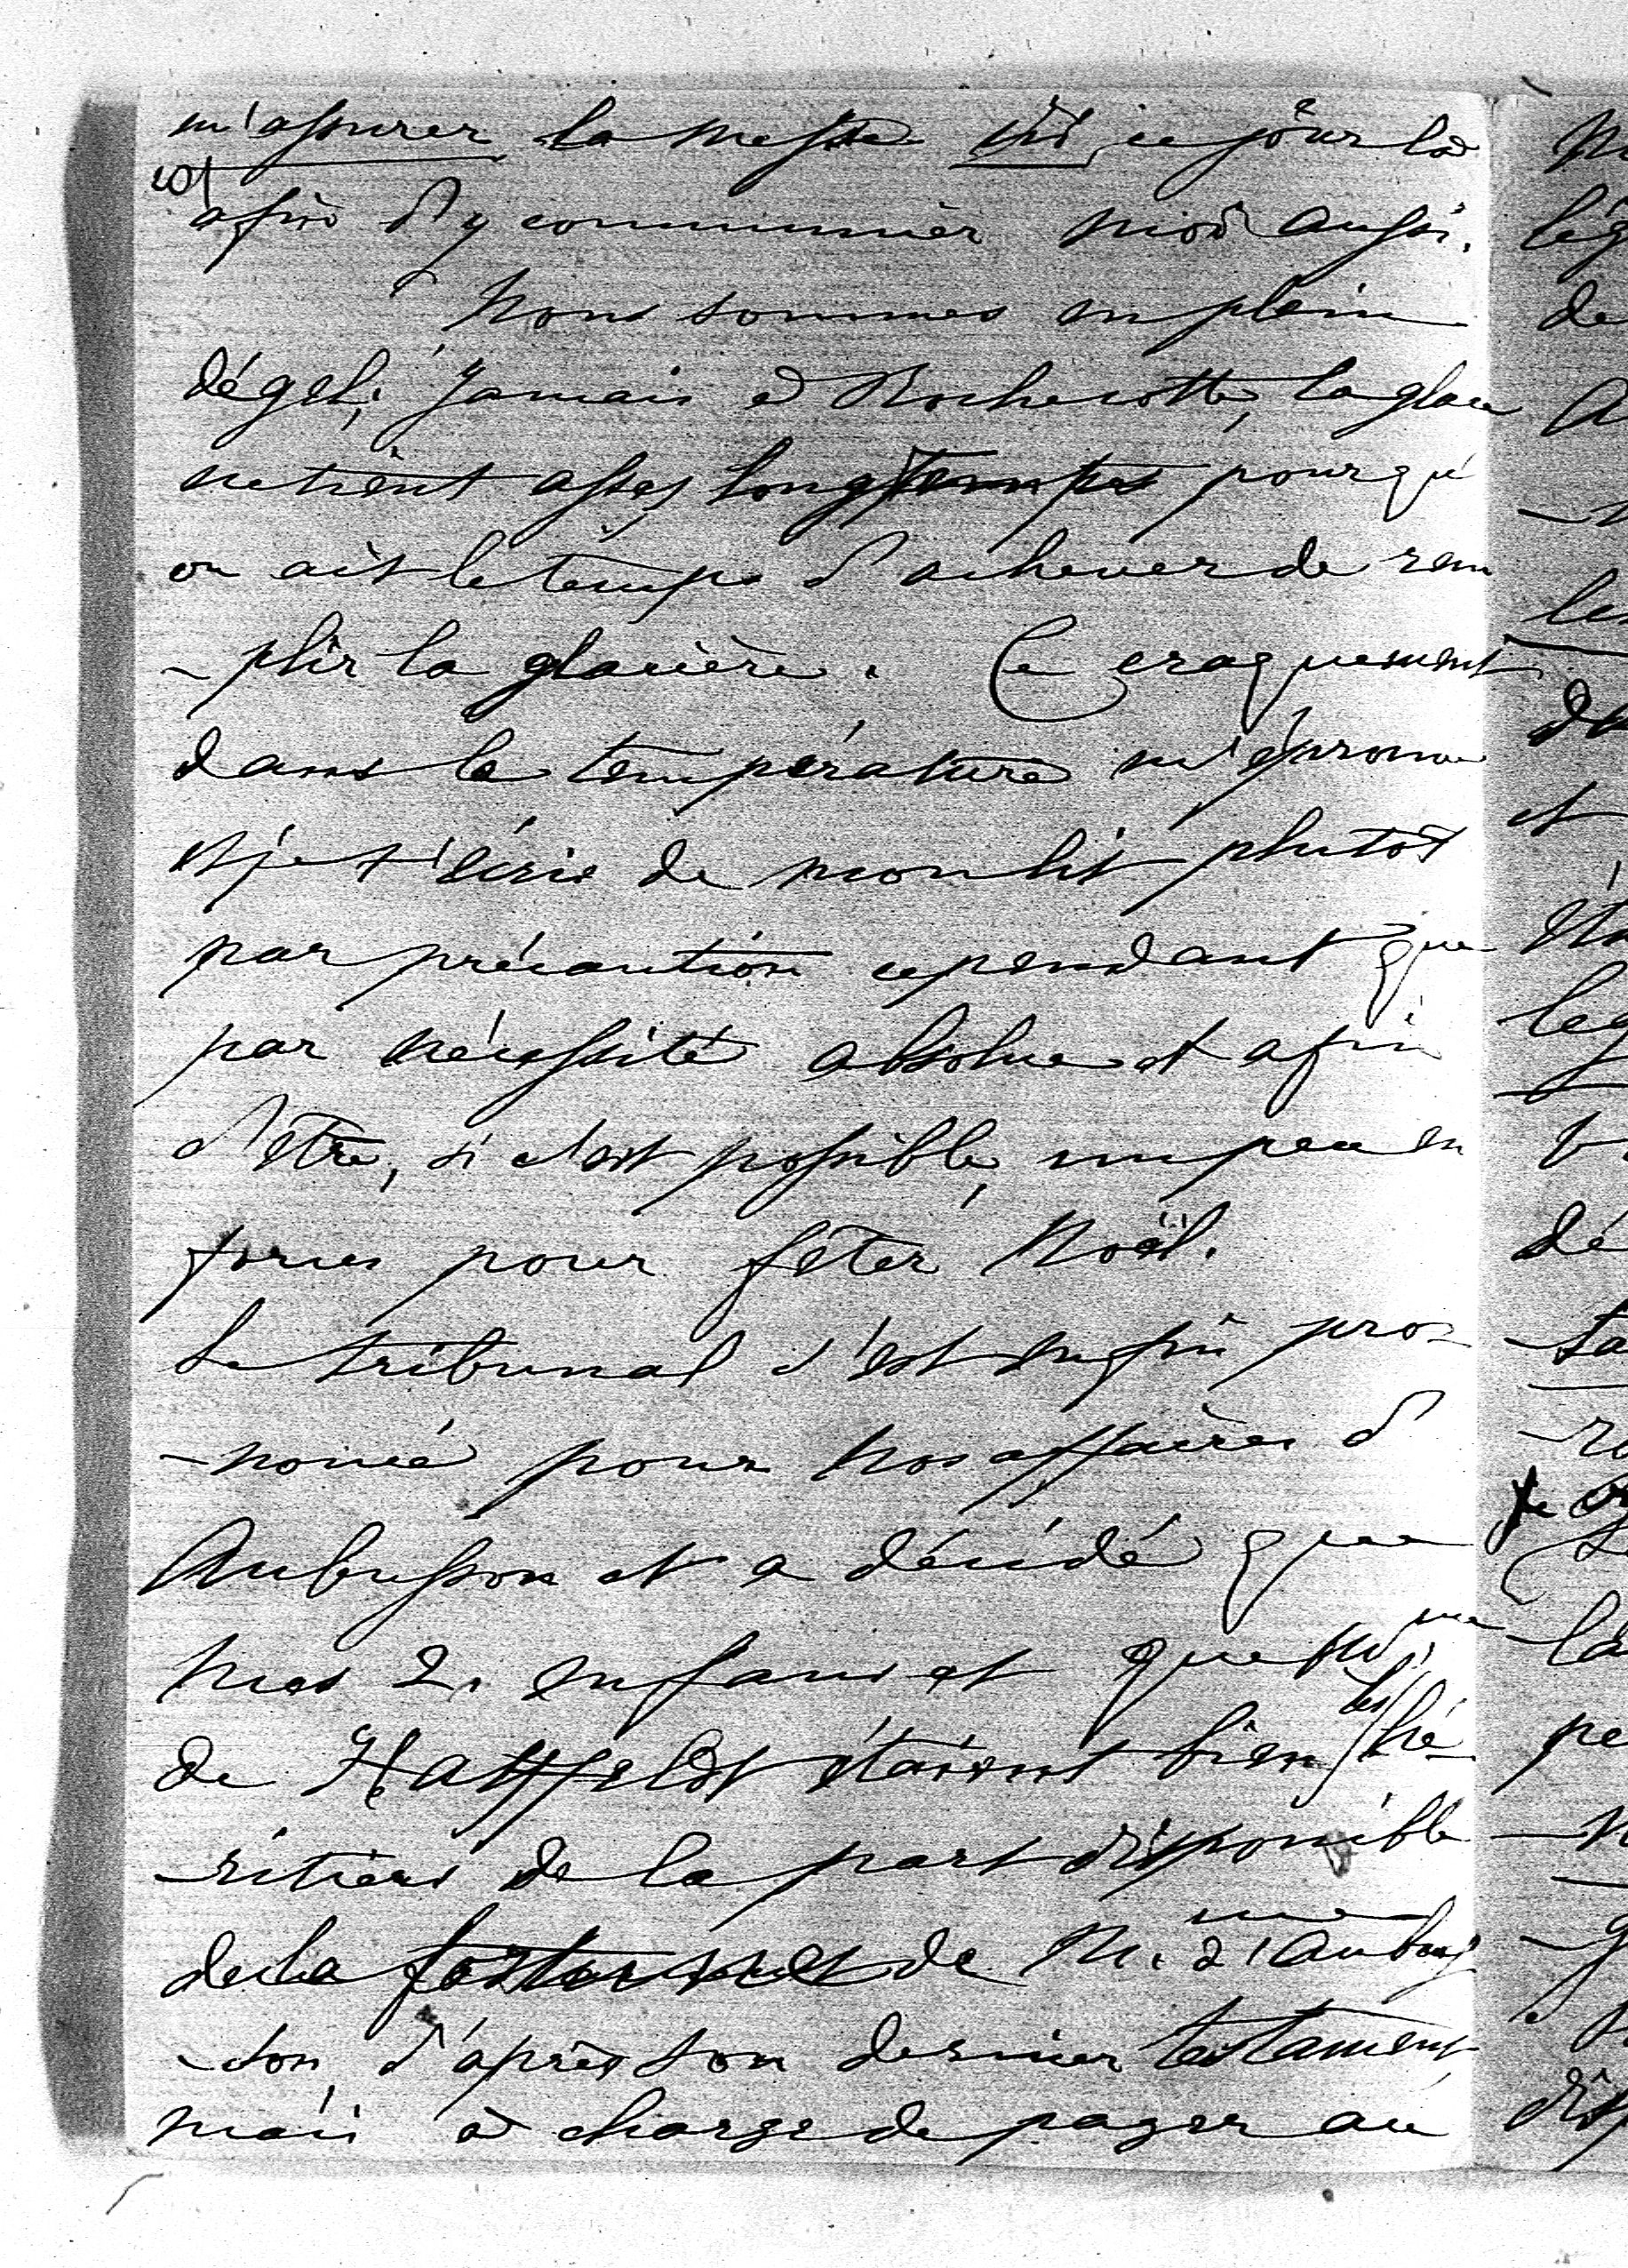 m'assurer la messe ici ce jour là
afin d'y communier moi aussi.
Nous sommes en plein
dégel; jamais à Rochecotte, la glace
ne tient assez longtemps pour qu'
on ait le temps d'achever de rem
-plir la glacière. Ce craquement
dans la température m'éprouve
et je t'écris de mon lit plutôt
par précaution cependant que
par nécessité absolue et afin
d'être, si c'est possible, un peu en
forces pour fêter Noël.
Le tribunal s'est enfin pro-
-noncé pour nos affaires d'
Aubusson et a décidé que
mes 2. enfans et que M.me
de Hatzfeldt étaient bien les hé-
-ritiers de la part disponible
de la fortune de M.me d'Aubus
-son, d'après son dernier testament,
mais à charge de payer au